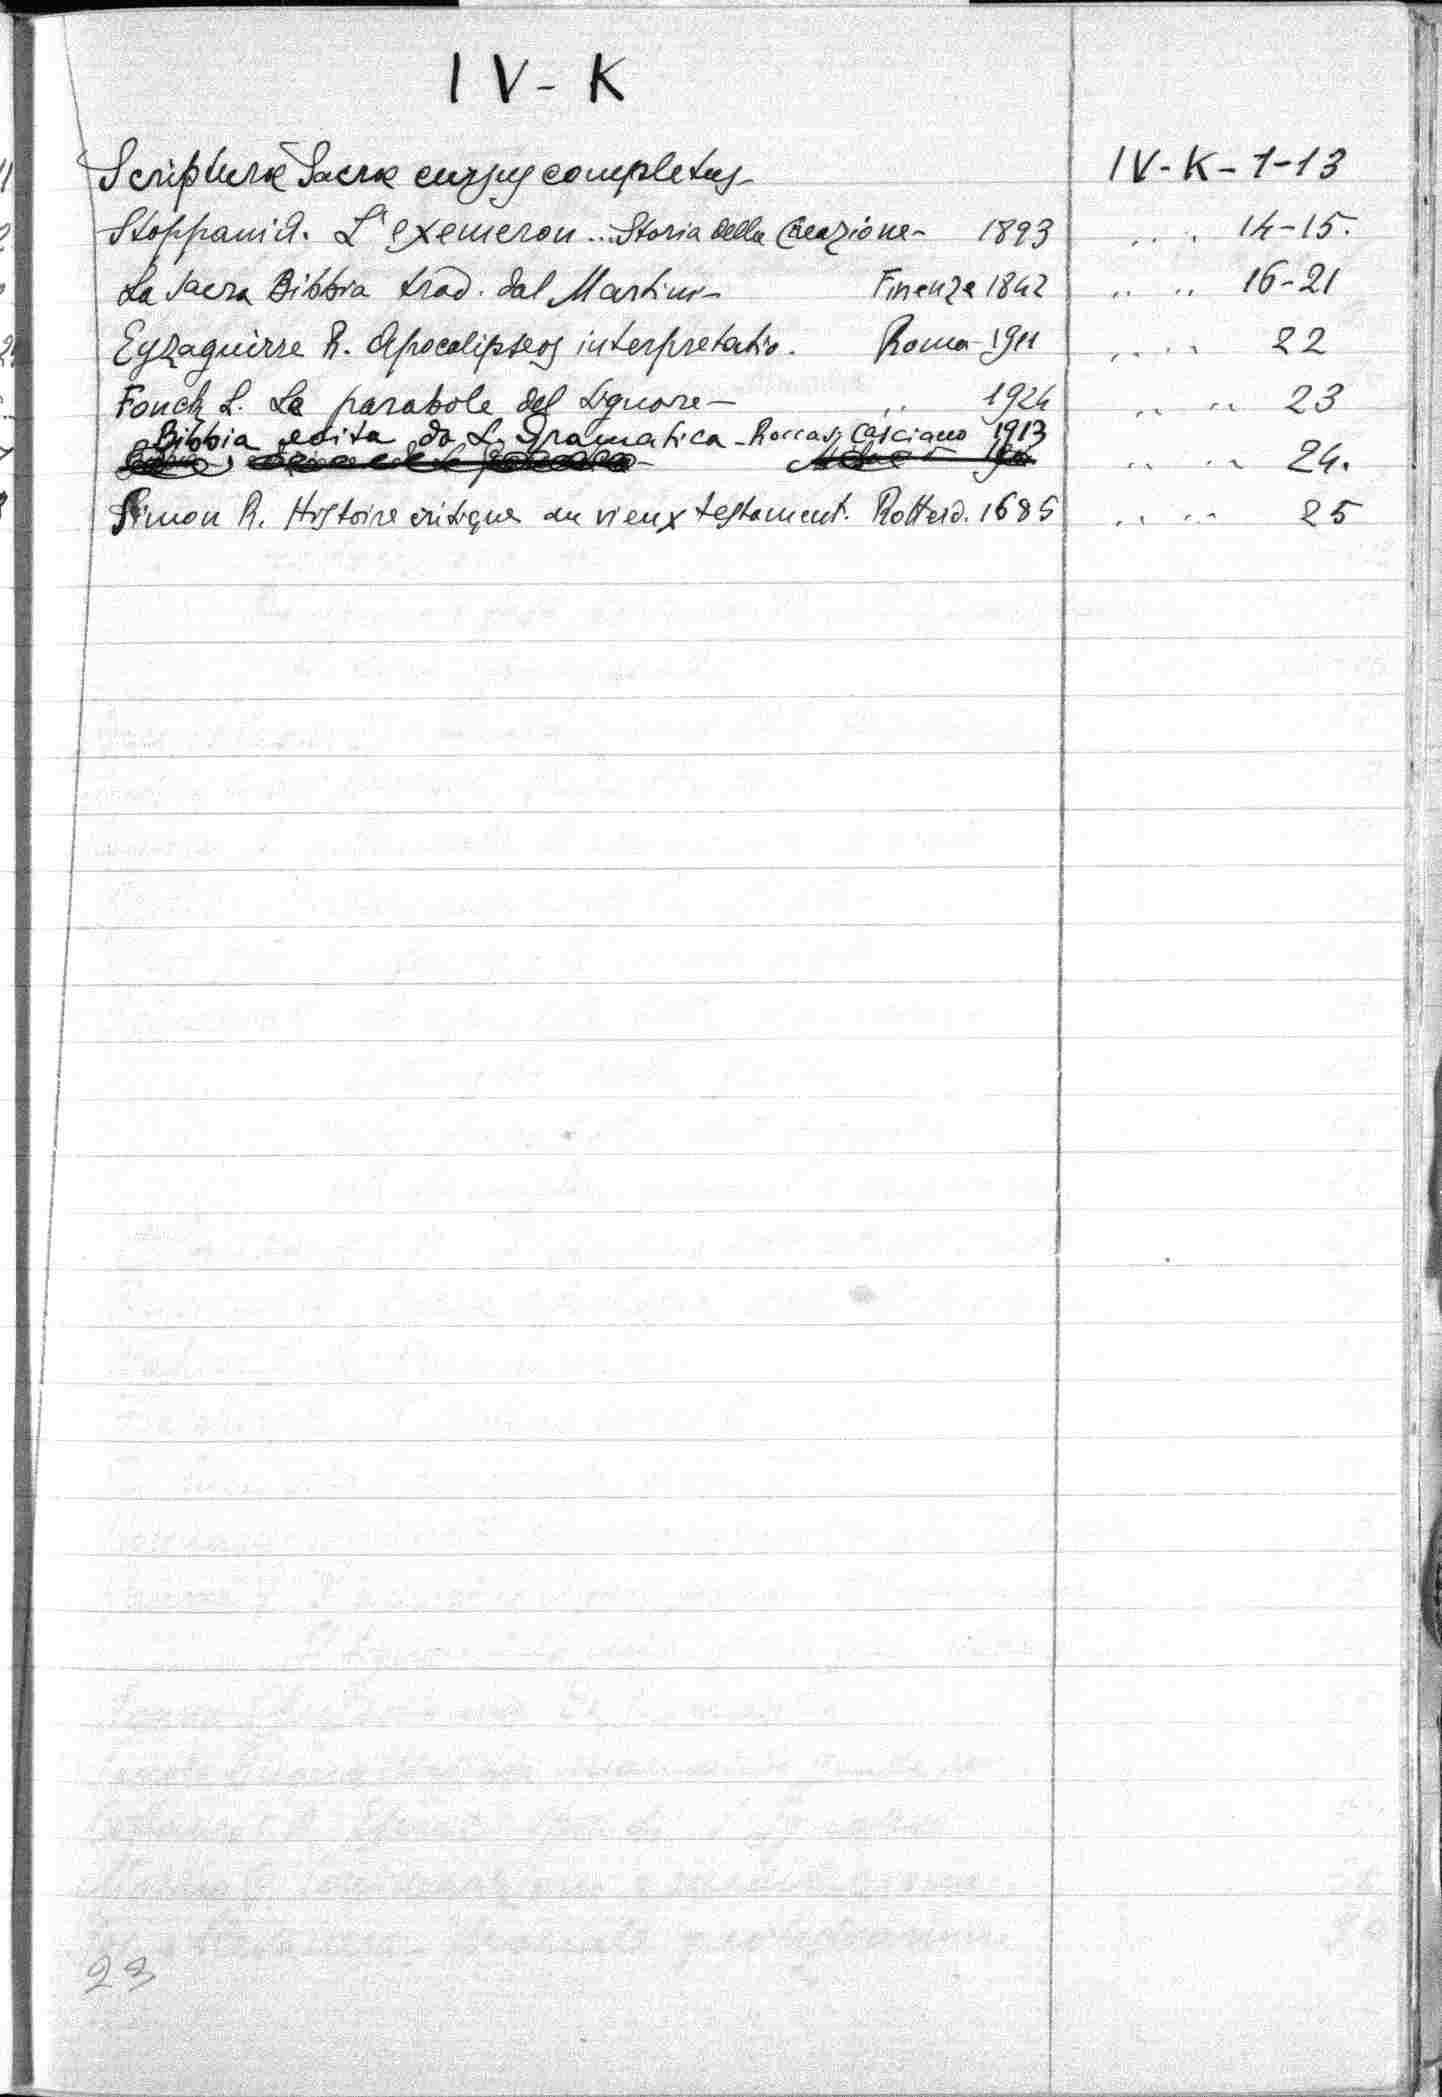 IV - K
Scripturæ Sacræ cursus completus - IV - K - 1-13
Stoppani A. L'exemeron ... Storia della Creazione - 1893 .. . 14-15.
La Sacra Bibbia trad. dal Martini - Firenze 1842 .. .. 16-21
Eyzaguirre R. Apocalipseos interpretatio. Roma 1911 .. .. 22
Fonck L. Le parabole del Signore - .. 1924 .. .. 23
Bibbia edita da L. Gramatica - Rocca S. Casciano 1913
.. .. 24.
Simon R. Histoire critique du vieux testament. Rotterd. 1685 .. .. 25
23